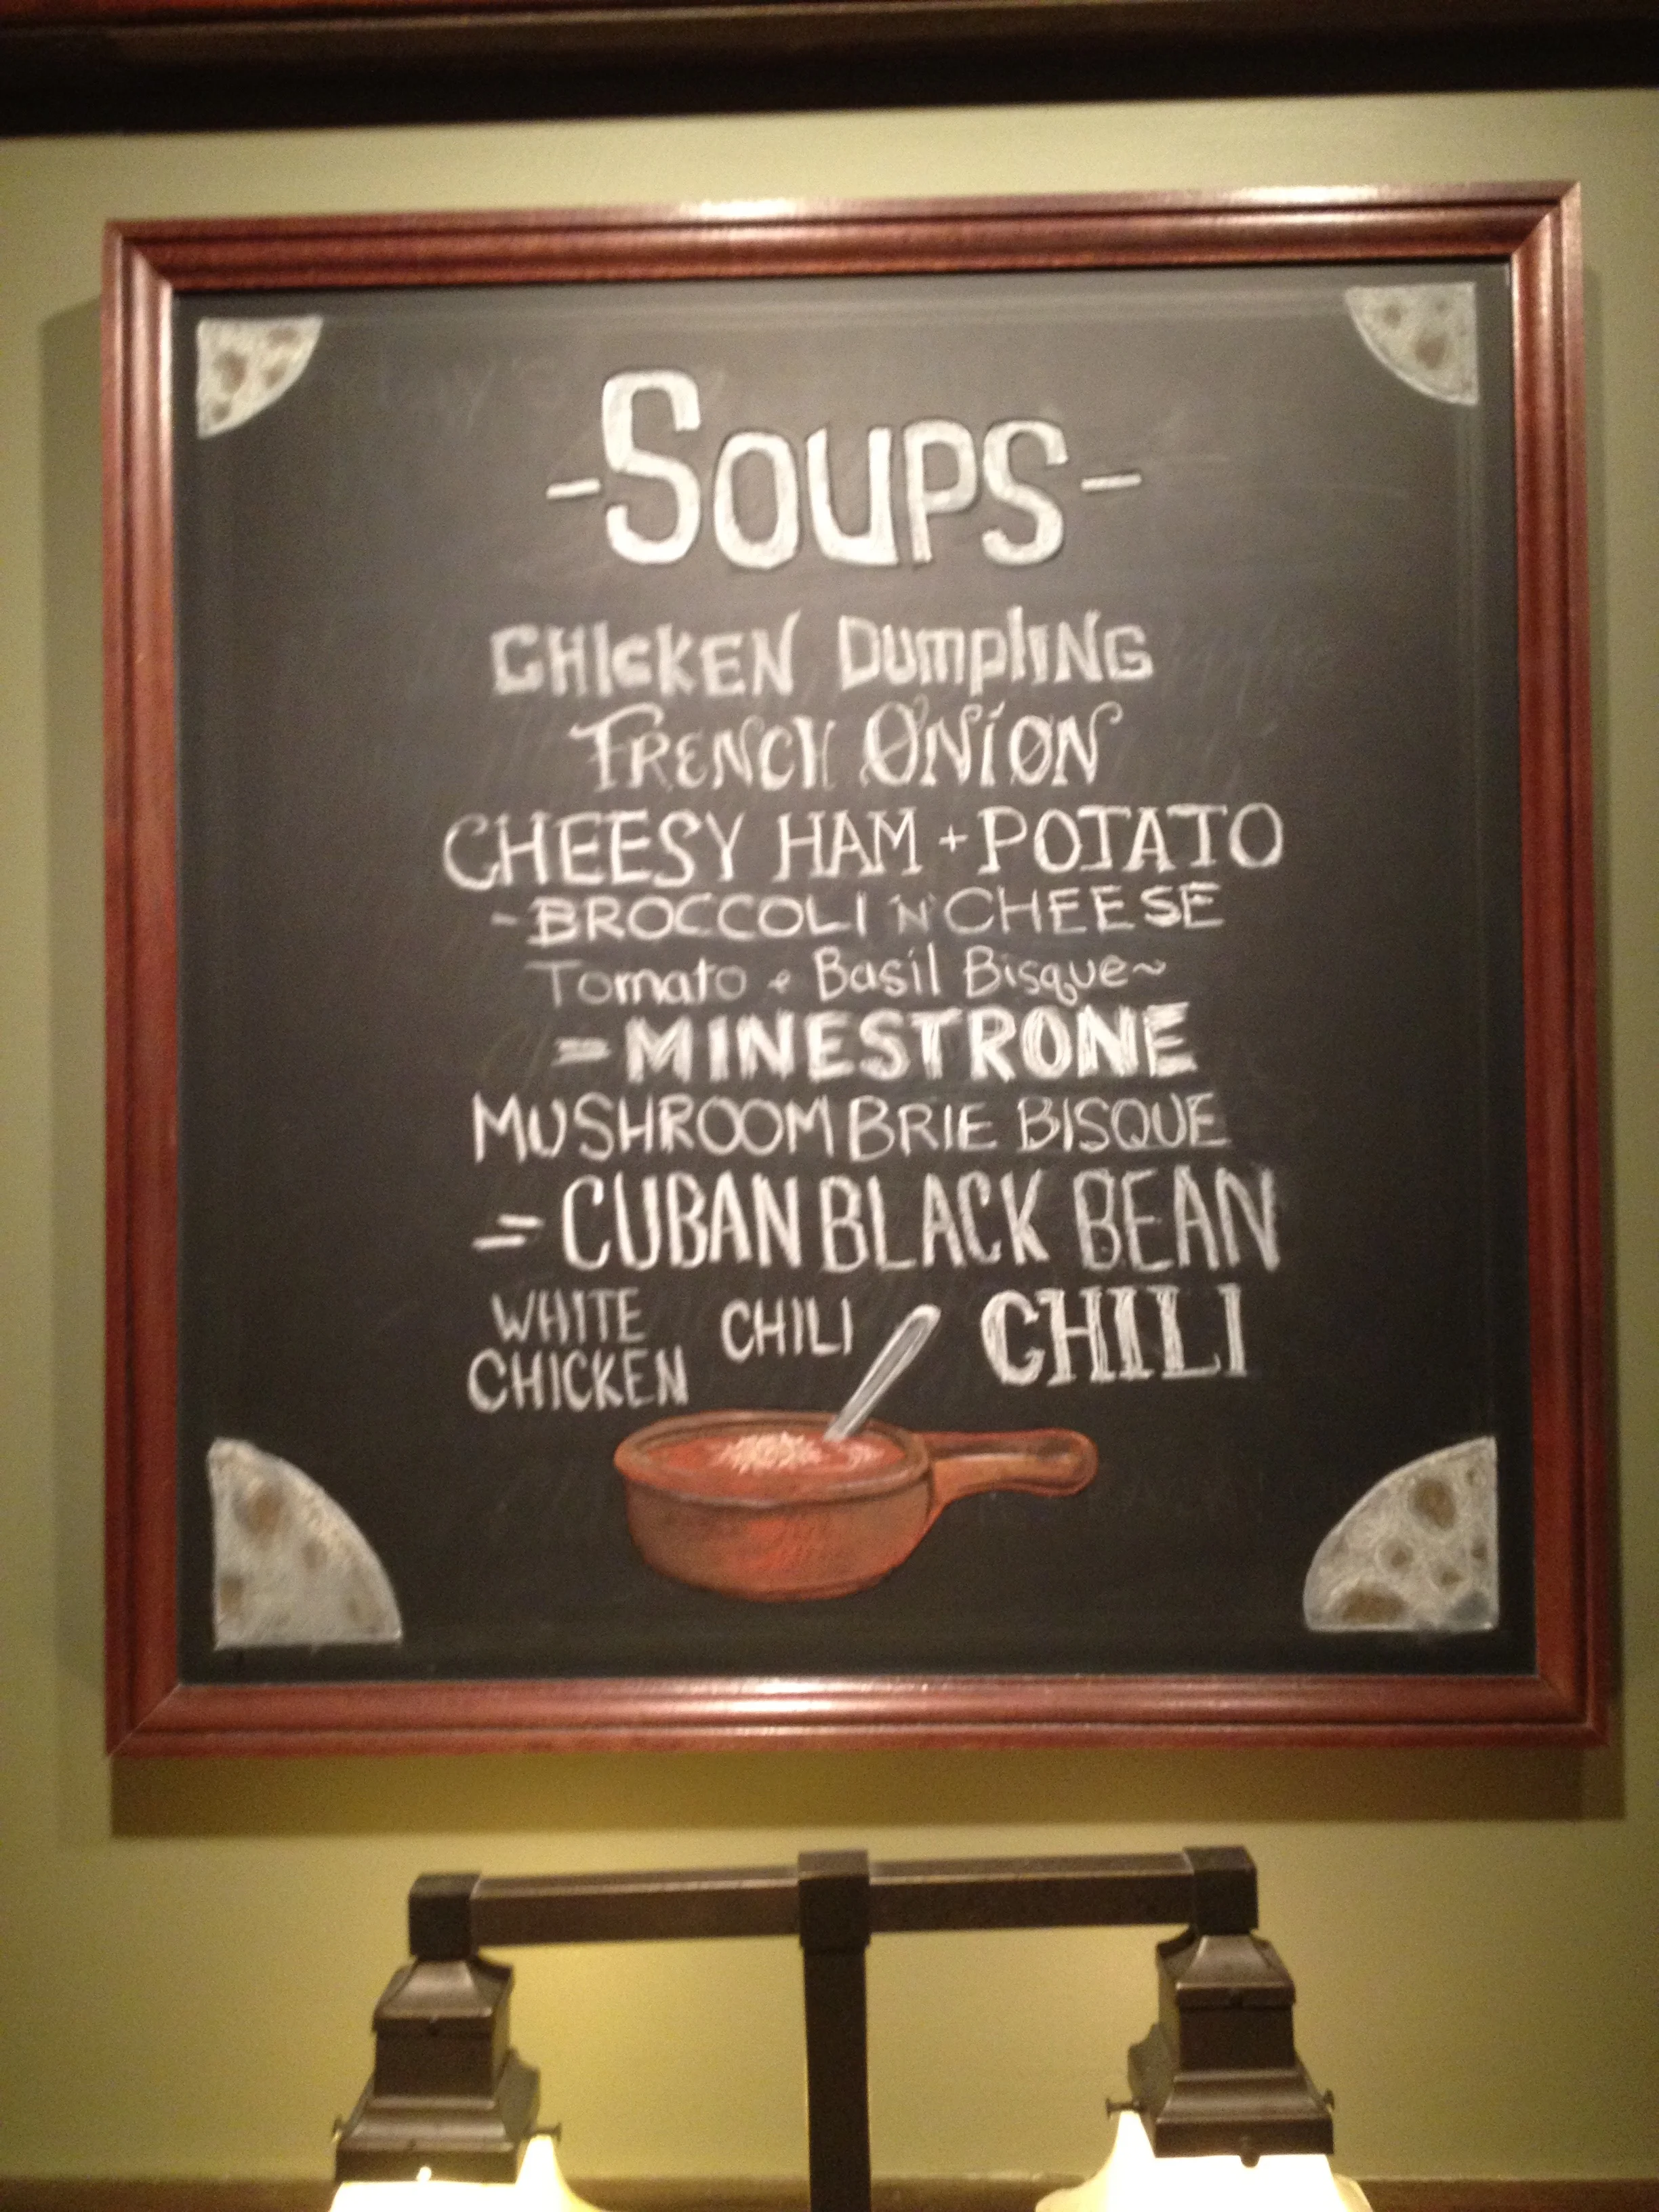 -SOUPS-
CHICKEN DUMPLING
FRENCH ONION
CHEESY HAM + POTATO
-BROCCOLI 'N' CHEESE
Tomato & Basil Bisque~
=MINESTRONE
MUSHROOM BRIE BISQUE
=CUBAN BLACK BEAN
WHITE CHICKEN CHILI
CHILI